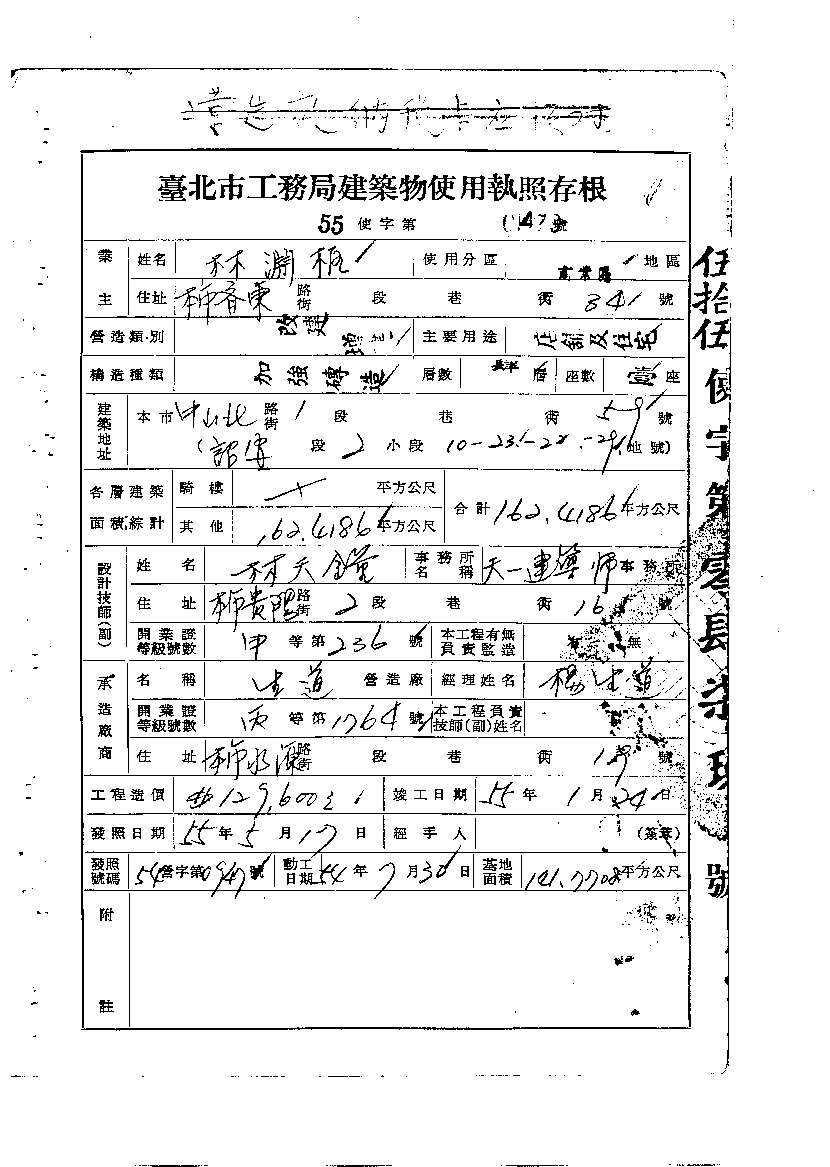 臺北市工務局建築物使用執照存根
55 使字第 號
業主 姓名 林淵 使用分區 商業區 地區
住址 本市 路街 段 巷 衖 341 號
營造類別 改建 主要用途 店舖及住宅
構造種類 加強磚造 層數 層 座數 座
建築地址 本市 中山北 路街 1 段 巷 衖 59 號
段 2 小段 地號)
各層建築面積綜計 騎樓 平方公尺 合計 162.4186 平方公尺
其他 162.4186 平方公尺
設計技師(副) 姓名 林天 事務所名稱 天一建築師 事務所
住址 本市貴陽 路街 2 段 巷 衖 16 號
開業證等級號數 甲 等第 236 號 本工程有無負責監造 無
承造廠商 名稱 生道 營造廠 經理姓名 楊生道
開業證等級號數 丙 等第 1764 號 本工程負責技師(副)姓名
住址 本市 路街 段 巷 衖 號
工程造價 129,600 竣工日期 55 年 1 月 24 日
發照日期 55 年 5 月 17 日 經手人 (簽章)
發照號碼 54 營字第 0947 號 動工日期 54 年 7 月 30 日 基地面積 141.7708 平方公尺
附註
伍拾伍使字第零肆柒玖號